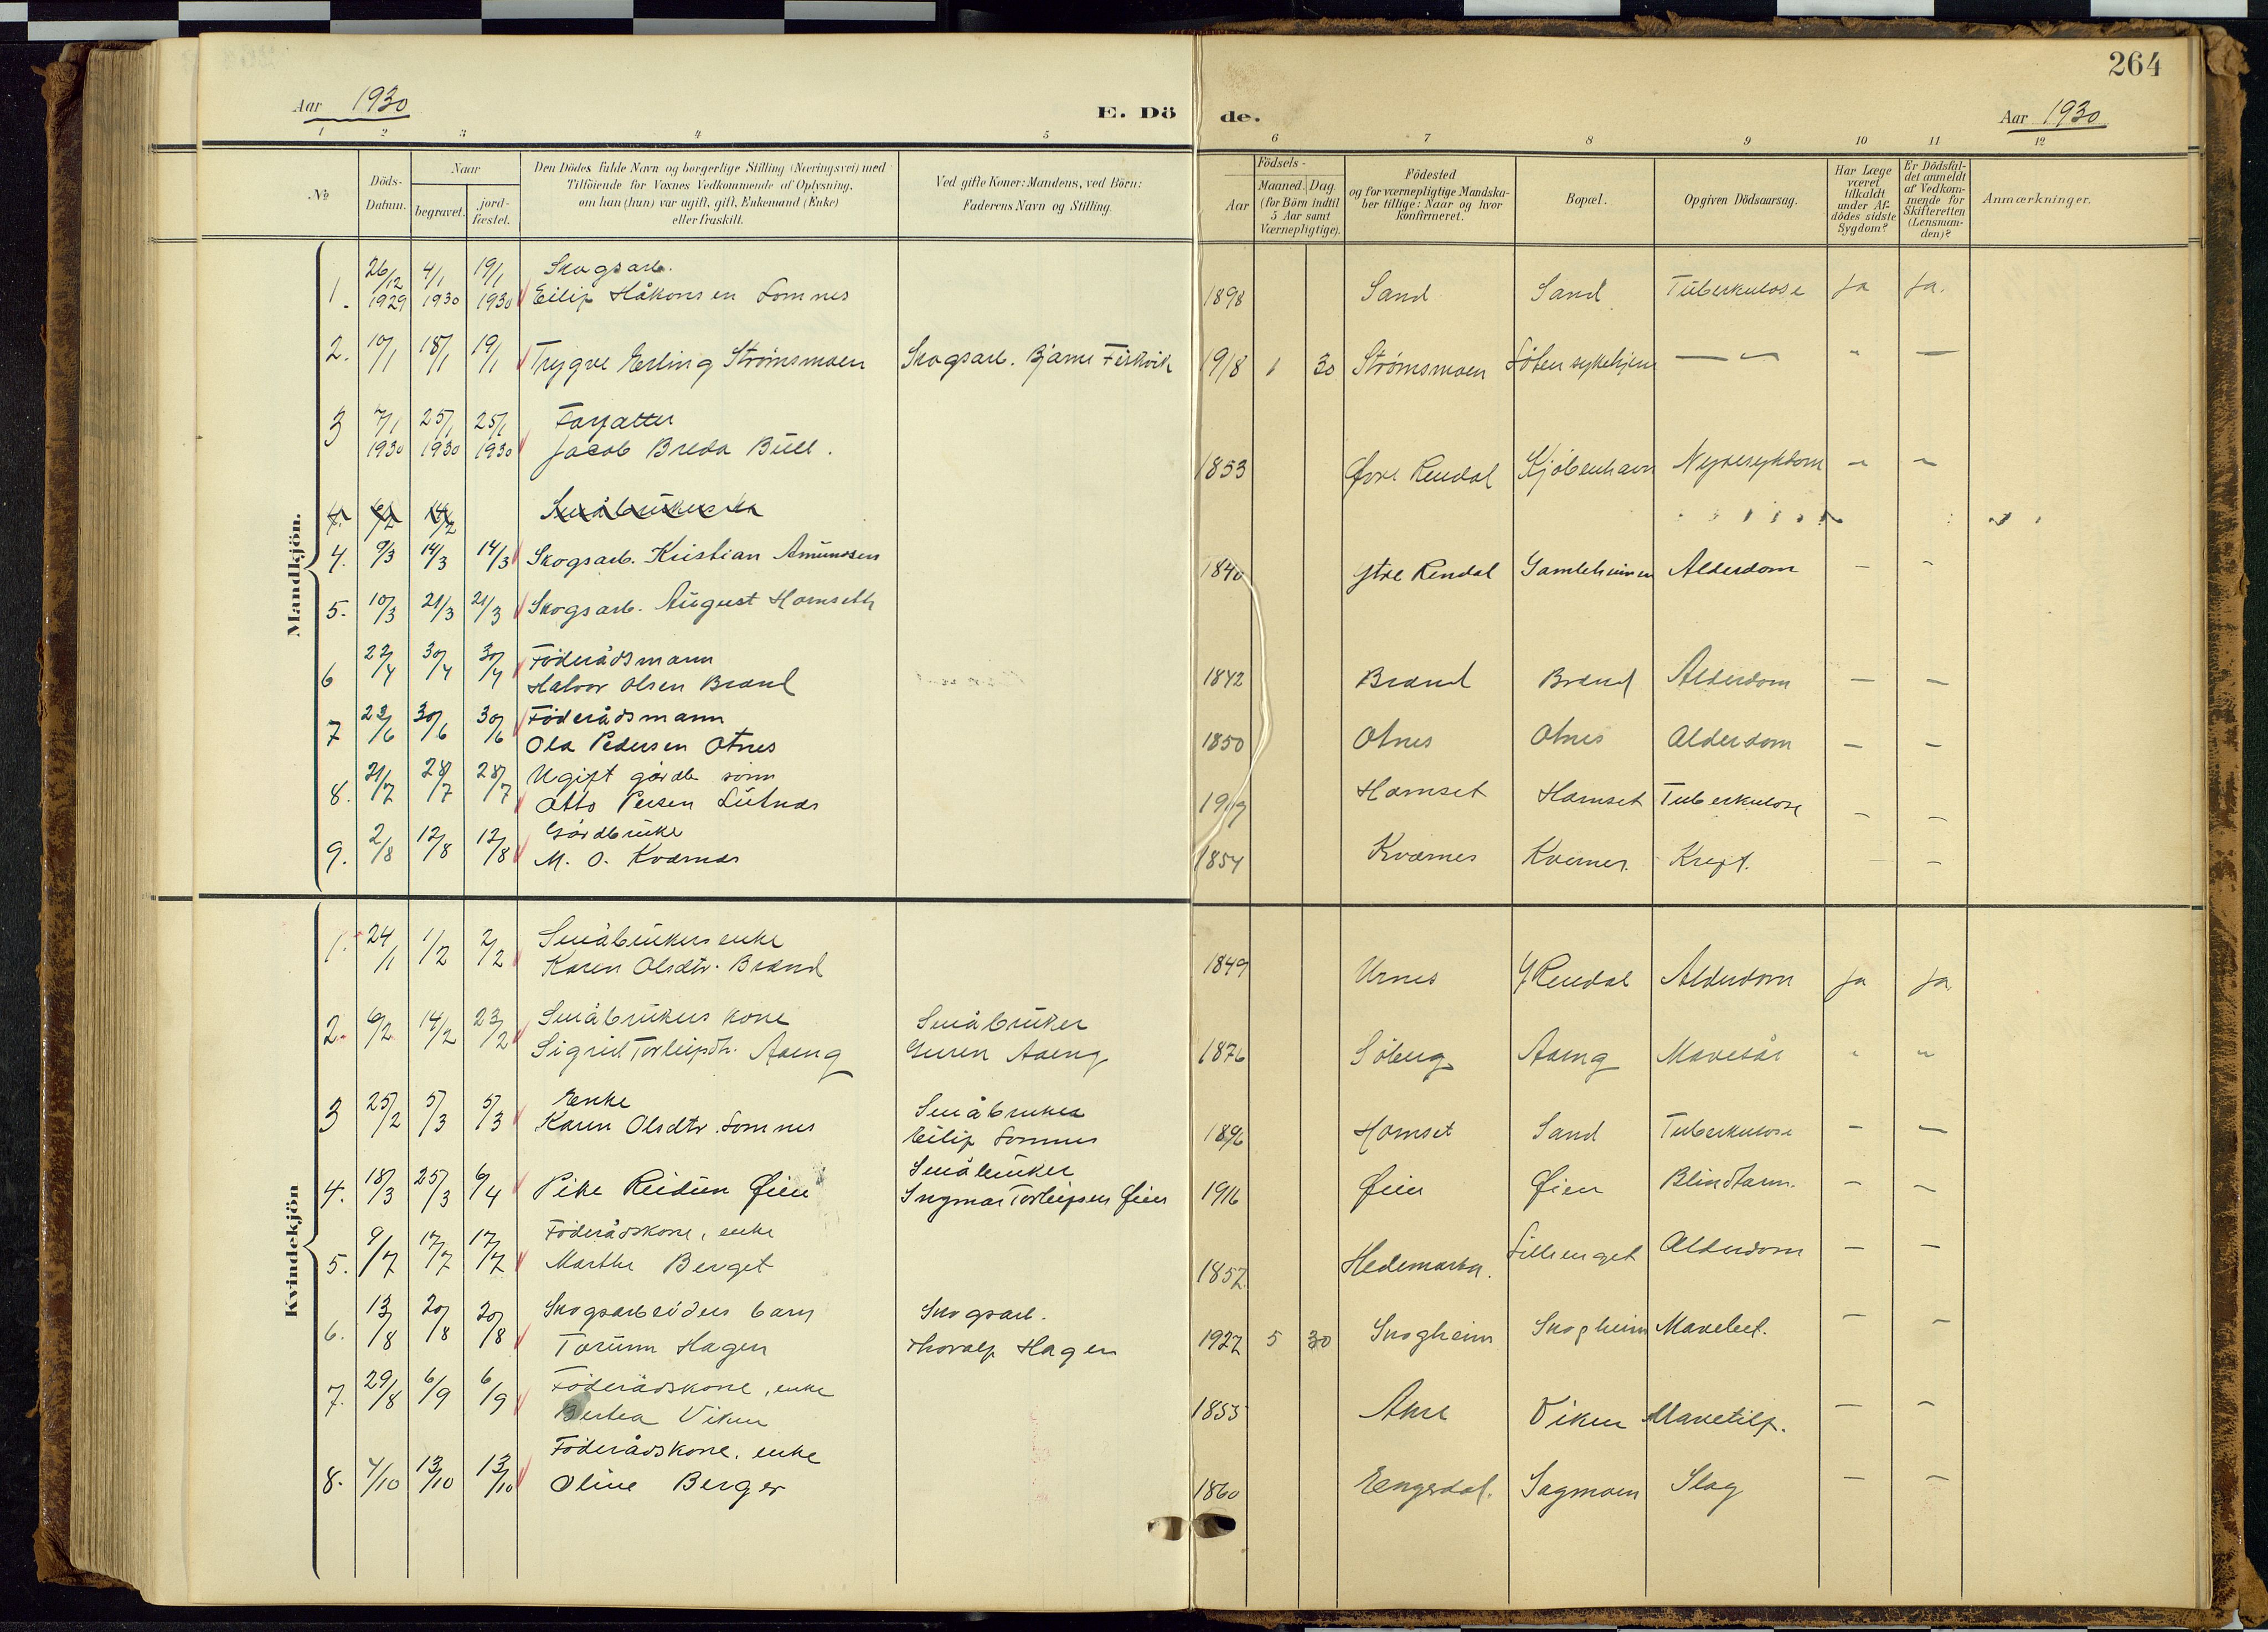 264
Aar 1930
E. Dö de.
Aar 1930
1 2 3 4 5 6 7 8 9 10 11 12
No
Döds-
Datum.
Naar
begravet.
jord-
fæstet.
Den Dödes fulde Navn og borgerlige Stilling (Næringsvei) med
Tilföiende for Voxnes Vedkommende af Oplysning,
om han (hun) var ugift, gift, Enkemand (Enke)
eller fraskilt.
Ved gifte Koner: Mandens, ved Börn:
Faderens Navn og Stilling.
Födsels-
Aar
Maaned. Dag.
(for Börn indtil
5 Aar samt
Værnepligtige).
Födested
og for værnepligtige Mandska-
ber tillige: Naar og hvor
konfirmeret.
Bopæl.
Opgiven Dödsaarsag.
Har Læge
været
tilkaldt
under Af-
dödes sidste
Sygdom?
Er Dödsfal-
det anmeldt
af Vedkom-
mende for
Skifteretten
(Lensman-
den)?
Anmærkninger.
Mandkjön.
26/12 4/1 19/1 Skogsarb.
1. 1929 1930 1930 Eilif Håkonsen Lomnes 1898 Sand Sand Tuberkulose Ja Ja.
2. 10/1 18/1 19/1 Trygve Erling Strömsmoen Skogsarb. Bjarne Fiskvik 1918 1 30 Strömsmoen Löten sykehjem — " — " —
3 7/1 25/1 25/1 Forfatter
1930 1930 1930 Jacob Breda Bull. 1853 Øvre Rendal Kjöbenhavn Nyresykdom - -
4. 6/2 14/2 Småbrukerske
4. 9/3 14/3 14/3 Skogsarb. Kristian Amundsen 1840 Ytre Rendal Gamleheimen Alderdom - -
5. 10/3 21/3 21/3 Skogsarb. August Hornseth
6 22/4 30/4 30/4 Föderådsmann
Halvor Olsen Brænd 1842 Brænd Brænd Alderdom — —
7 23/6 30/6 30/6 Föderådsmann
Ola Pedersen Otnes 1850 Otnes Otnes Alderdom — —
8. 21/7 28/7 28/7 Ugift gårdb sönn
Otto Persen Lutnæs 1919 Hornset Hornset Tuberkulose — —
9. 2/8 12/8 12/8 Gårdbruke
M. O. Kværnæs 1854 Kværnes Kværnes. Kreft. —
Kvindekjön
1. 24/1 1/2 2/2 Småbrukers enke
Karen Olsdtr. Brænd 1849 Urnes Y Rendal Alderdom Ja Ja
2. 6/2 14/2 23/2 Småbrukers kone Småbruker
Sigrid Torleipdtr. Aaeng Aaeng 1876 Söberg Aaeng Mavesår " "
3 25/2 5/3 5/3 Enke Småbruker
Karen Olsdtr. Lomnes Eilif Lomnes 1896 Hornset Sand Tuberkulose - —
Småbruker
4. 18/3 25/3 6/4 Pike Reidun Øien Ingmar Torleipsen Øien 1916 Øien Øien Blindtarm. - -
5. 9/7 17/7 17/7 Föderådskone, enke
Marthe Berget 1857 Hedemarken. Lillenget Alderdom — —
6. 13/8 20/8 20/8 Skogsarbeiders barn Skogsarb.
Torunn Hagen Thoralf Hagen 1927 5 30 Skogheim Skogheim Mavebet. — —
7. 29/8 6/9 6/9 Föderådskone, enke
Berthea Viken 1853 Akre Viken Mavetilf. — -
8. 4/10 13/10 13/10 Föderådskone, enke
Oline Berger 1860 Engerdal. Sagmoen Slag — —